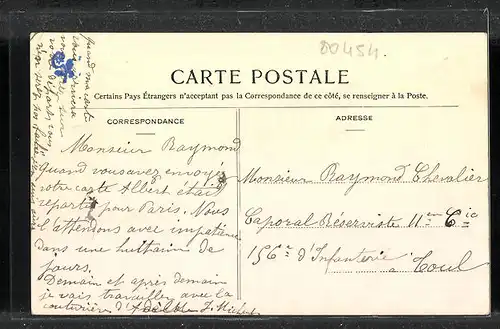 80454
CARTE POSTALE
Certains Pays Étrangers n'acceptant pas la Correspondance de ce côté, se renseigner à la Poste.
CORRESPONDANCE
Monsieur Raymond
Quand vous avez envoyé
votre carte Albert était
reparti pour Paris. Nous
l'attendons avec impatience
dans une huitaine de
jours.
Demain et après demain
je vais travailler avec la
couturière
quand ma carte
vous
ADRESSE
Monsieur Raymond Chevalier
Caporal Réserviste 11em Cie
156e d'Infanterie
à Toul